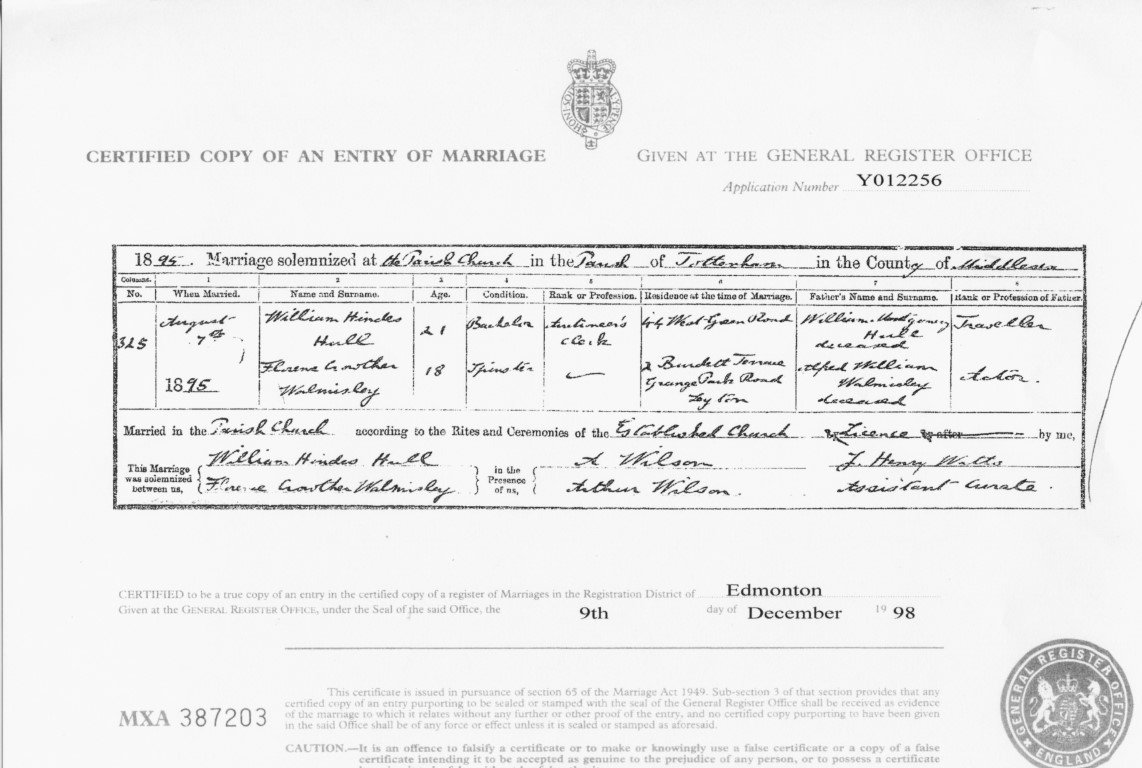 HONI SOIT QUI MAL Y PENSE
CERTIFIED COPY OF AN ENTRY OF MARRIAGE
GIVEN AT THE GENERAL REGISTER OFFICE
Application Number Y012256
1895. Marriage solemnized at the Parish Church in the Parish of Tottenham in the County of Middlesex
Columns. 1 2 3 4 5 6 7 8
No. When Married. Name and Surname. Age. Condition. Rank or Profession. Residence at the time of Marriage. Father's Name and Surname. Rank or Profession of Father.
325 August 7th 1895
William Hindes Hull 21 Bachelor Auctioneer's Clerk 44 West Green Road William Montgomery Hull deceased Traveller
Florence Crowther Walmisley 18 Spinster 2 Burdett Terrace Grange Park Road Leyton Alfred William Walmisley deceased Actor.
Married in the Parish Church according to the Rites and Ceremonies of the Established Church by Licence or after by me,
This Marriage was solemnized between us, William Hindes Hull Florence Crowther Walmisley in the Presence of us, A Wilson Arthur Wilson. J. Henry Watts Assistant Curate.
CERTIFIED to be a true copy of an entry in the certified copy of a register of Marriages in the Registration District of Edmonton
Given at the GENERAL REGISTER OFFICE, under the Seal of the said Office, the 9th day of December 19 98
This certificate is issued in pursuance of section 65 of the Marriage Act 1949. Sub-section 3 of that section provides that any
certified copy of an entry purporting to be sealed or stamped with the seal of the General Register Office shall be received as evidence
of the marriage to which it relates without any further or other proof of the entry, and no certified copy purporting to have been given
in the said Office shall be of any force or effect unless it is sealed or stamped as aforesaid.
MXA 387203
CAUTION.—It is an offence to falsify a certificate or to make or knowingly use a false certificate or a copy of a false
certificate intending it to be accepted as genuine to the prejudice of any person, or to possess a certificate
GENERAL REGISTER OFFICE ENGLAND